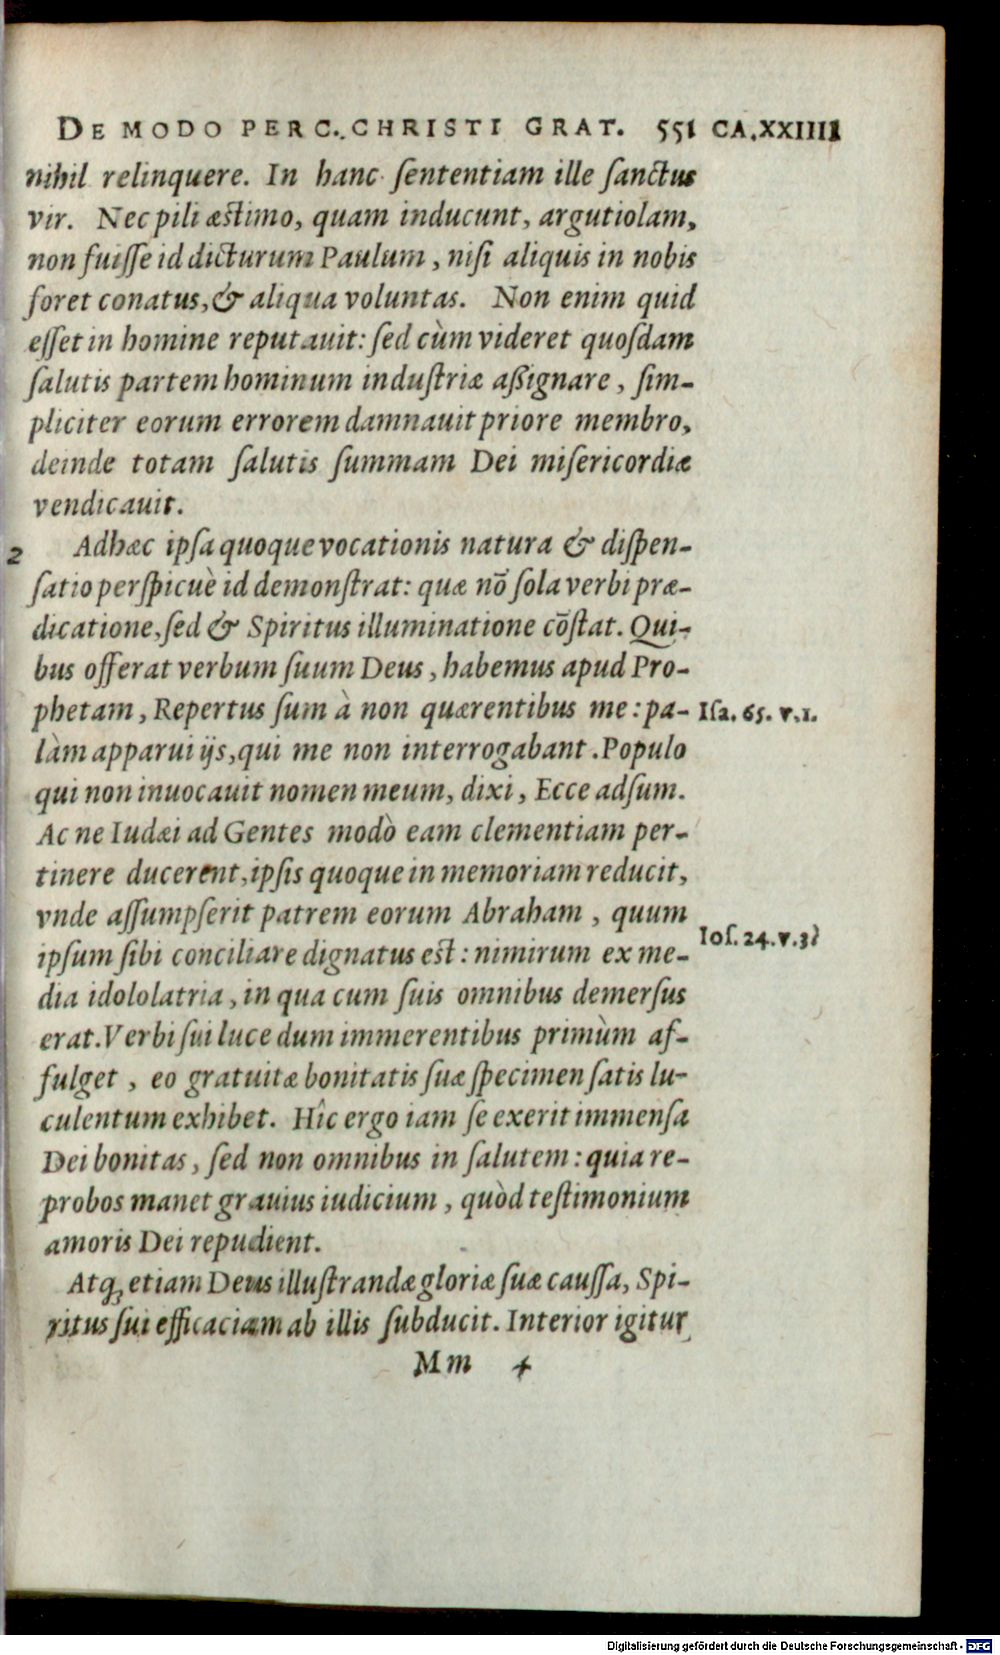 DE MODO PERC. CHRISTI GRAT. 551 CA.XXIIII
nihil relinquere. In hanc sententiam ille sanctus
vir. Nec pili æstimo, quam inducunt, argutiolam,
non fuiſſe id dicturum Paulum, niſi aliquis in nobis
foret conatus, & aliqua voluntas. Non enim quid
eſſet in homine reputauit: ſed cùm videret quoſdam
ſalutis partem hominum induſtriæ aßignare, ſim-
pliciter eorum errorem damnauit priore membro,
deinde totam ſalutis ſummam Dei miſericordiæ
vendicauit.
2 Adhæc ipſa quoque vocationis natura & diſpen-
ſatio perſpicuè id demonſtrat: quæ nō ſola verbi præ-
dicatione, ſed & Spiritus illuminatione cōſtat. Qui-
bus offerat verbum ſuum Deus, habemus apud Pro-
phetam, Repertus ſum à non quærentibus me: pa- Iſa. 65. v.1.
làm apparui ijs, qui me non interrogabant. Populo
qui non inuocauit nomen meum, dixi, Ecce adſum.
Ac ne Iudæi ad Gentes modò eam clementiam per-
tinere ducerent, ipſis quoque in memoriam reducit,
vnde aſſumpſerit patrem eorum Abraham, quum
ipſum ſibi conciliare dignatus eſt: nimirum ex me- Ioſ. 24. v.3
dia idololatria, in qua cum ſuis omnibus demerſus
erat. Verbi ſui luce dum immerentibus primùm af-
fulget, eo gratuitæ bonitatis ſuæ ſpecimen ſatis lu-
culentum exhibet. Hîc ergo iam ſe exerit immenſa
Dei bonitas, ſed non omnibus in ſalutem: quia re-
probos manet grauius iudicium, quòd teſtimonium
amoris Dei repudient.
Atq; etiam Deus illuſtrandæ gloriæ ſuæ cauſſa, Spi-
ritus ſui efficaciam ab illis ſubducit. Interior igitur
Mm 4
Digitalisierung gefördert durch die Deutsche Forschungsgemeinschaft - DFG